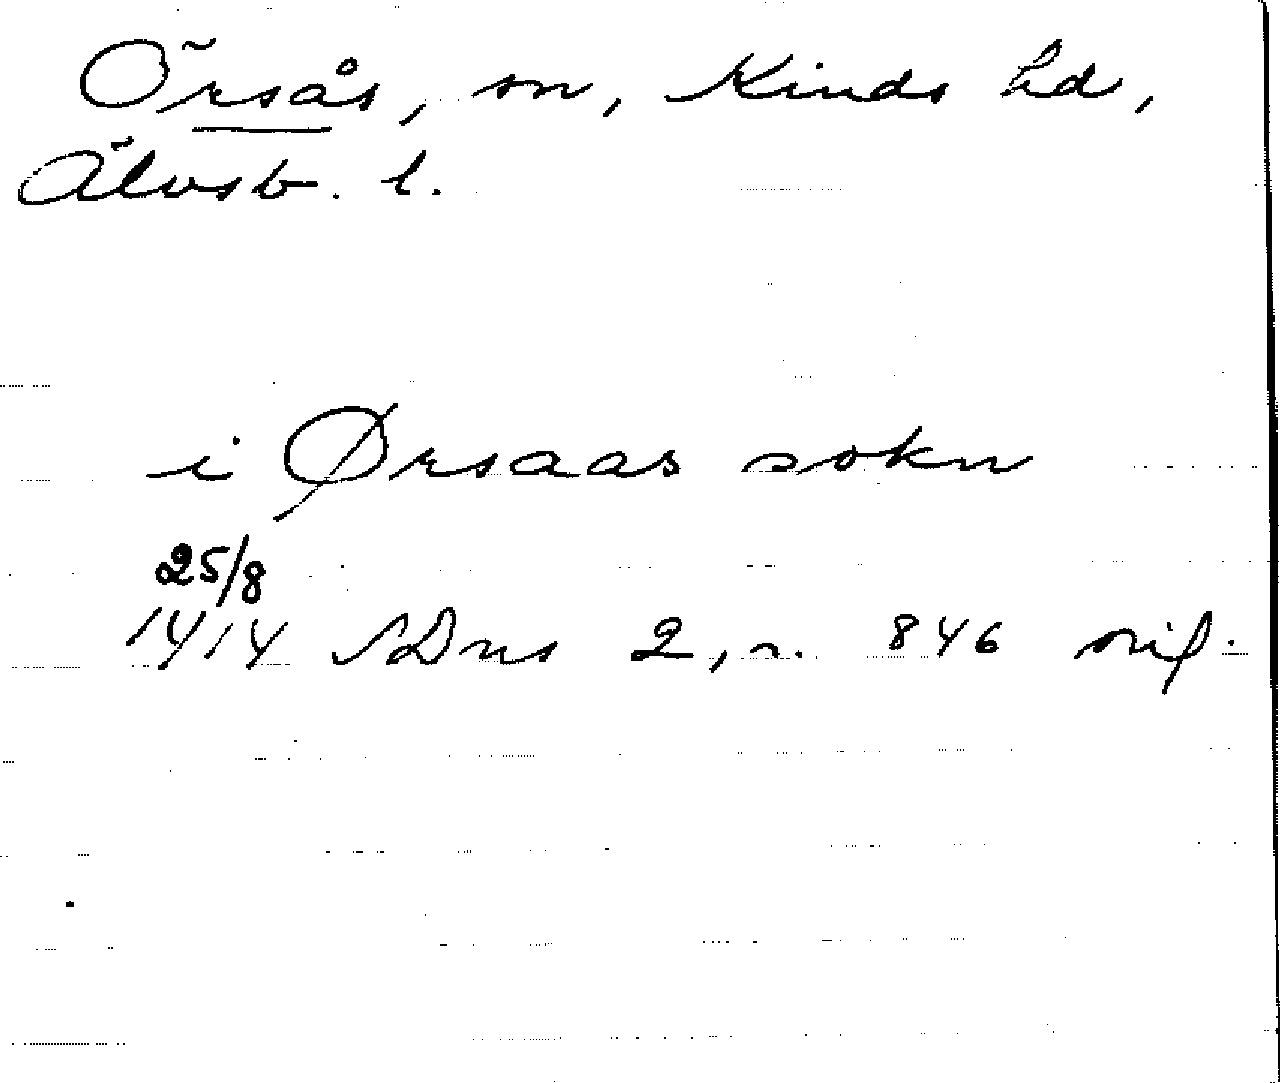 Örsås, sn, Kinds hd,
Älvsb. l.
i Ørsaas sokn
25/8
1414 SDns 2, n. 846 orig.